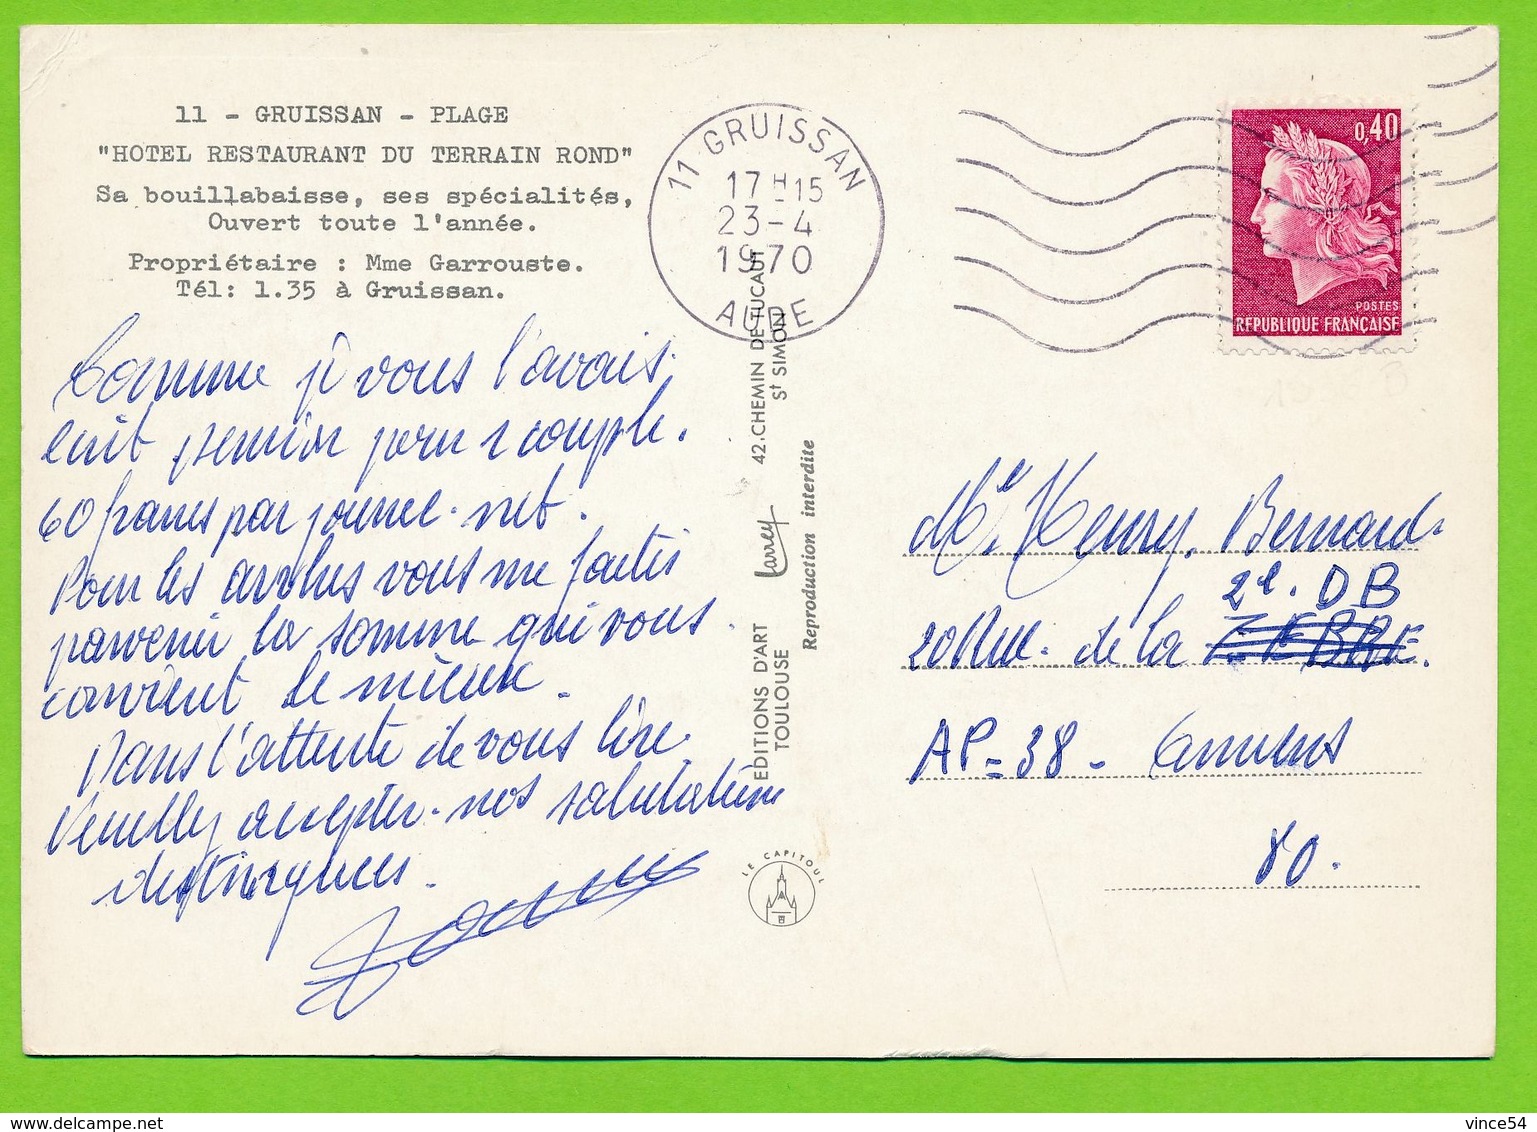 11 - GRUISSAN - PLAGE
"HOTEL RESTAURANT DU TERRAIN ROND"
Sa bouillabaisse, ses spécialités,
Ouvert toute l'année.
Propriétaire : Mme Garrouste.
Tél: 1.35 à Gruissan.
Comme je vous l'avais
écrit pension pour 1 couple.
60 francs par journee. net.
Pour les arrhes vous me faites
parvenir la somme qui vous
convient le mieux.
Dans l'attente de vous lire.
Veuillez accepter. nos salutations
distinguees.
11 GRUISSAN
17 H 15
23-4
1970
AUDE
EDITIONS D'ART Larrey 42.CHEMIN DE TUCAUT
TOULOUSE Reproduction interdite St SIMON
LE CAPITOUL
0,40
POSTES
REPUBLIQUE FRANÇAISE
Henry. Bernard.
2e. DB
20 Rue. de la
AP=38 - Amiens
80.
vince54